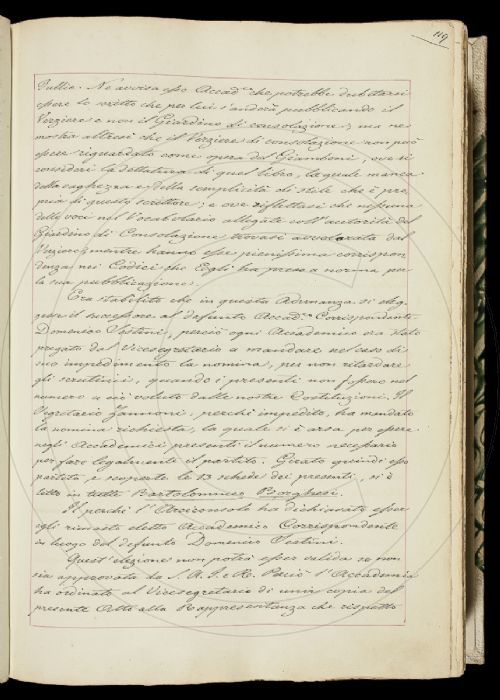 119
Tullio. Ne avvisa esso Accad.co che potrebbe dubitarsi
essere lo scritto che per lui s'andrà pubblicando il
Verziere e non il Giardino di consolazione; ma ne
mostra altresì che il Verziere di consolazione non può
essere riguardato come opera del Giamboni, ove si
consideri la dettatura di quel libro, la quale manca
della vaghezza e della semplicità di stile che è pro-
pria di questo scrittore; e ove rifflettasi che nessuna
delle voci nel Vocabolario allegate coll'autorità del
Giardino di Consolazione trovasi avvalorata dal
Verziere, mentre hanno esse pienissima corrispon
denza nei Codici che Egli ha preso a norma per
la sua pubblicazione.
Era stabilito che in questa Adunanza si eleg-
gesse il successore al defunto Accad.co Corrispondente
Domenico Sestini, perciò ogni Accademico era stato
pregato dal Vicesegretario a mandare nel caso di
suo impedimento la nomina, per non ritardare
gli scrutinii, quando i presenti non fossero nel
numero a ciò voluto dalle nostre Costituzioni. Il
Segretario Zannoni, perchè impedito, ha mandato
la nomina richiesta, la quale si è arsa per essere
negli Accademici presenti il numero necessario
per fare legalmente il partito. Girato quindi esso
partito, e scoperte le 13 schede dei presenti, si è
letto in tutte Bartolommeo Borghesi.
Il perchè l'Arciconsolo ha dichiarato essere
egli rimasto eletto Accademico Corrispondente
in luogo del defunto Domenico Sestini.
Quest'elezione non potrà esser valida se non
sia approvata da S. A. I. e R. Perciò l'Accademia
ha ordinato al Vicesegretario di unir copia del
presente Atto alla Rappresentanza che rispetto